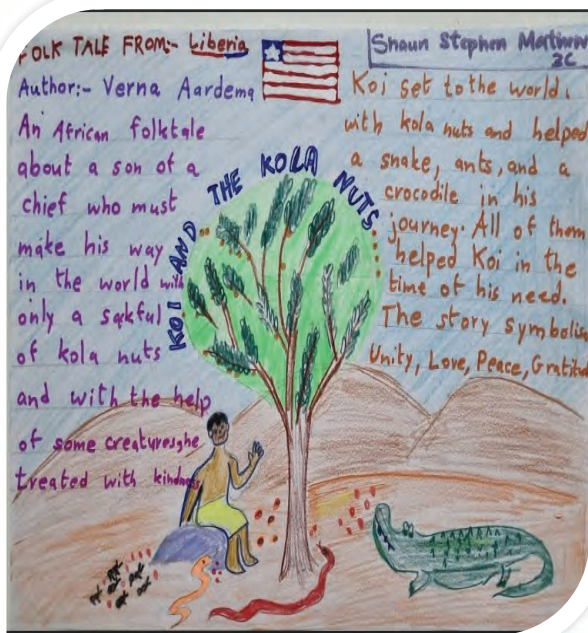 FOLK TALE FROM:- Liberia
Author:- Verna Aardema
An African folktale
about a son of a
chief who must
make his way
in the world with
only a sackful
of kola nuts
and with the help
of some creatures he
treated with kindness
KOI AND THE KOLA NUTS
Shaun Stephen
2C
Koi set to the world.
with kola nuts and helped
a snake, ants, and a
crocodile in his
journey. All of them
helped Koi in the
time of his need.
The story
Unity, Love, Peace,